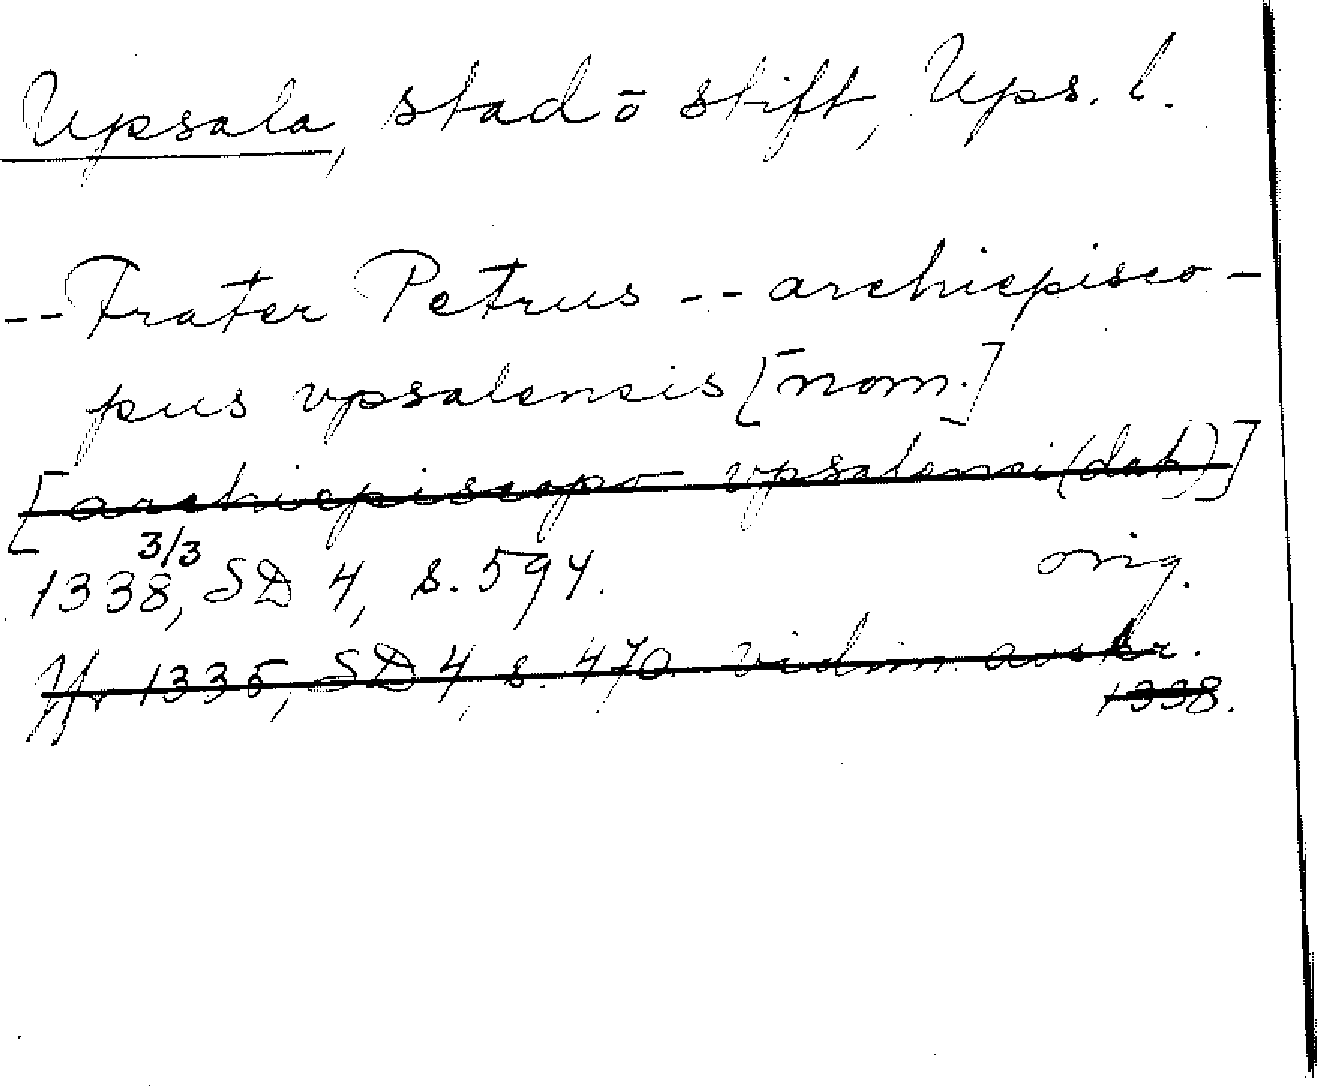 Upsala, stad ō stift, Ups. l.
-- Frater Petrus -- archiepisco-
pus vpsalensis [nom.]
[archiepiscopo vpsalensi (dat.)]
3/3
1338, SD 4, s. 594. orig.
Jfr 1335, SD 4, s. 470 vidim. avskr.
1338.